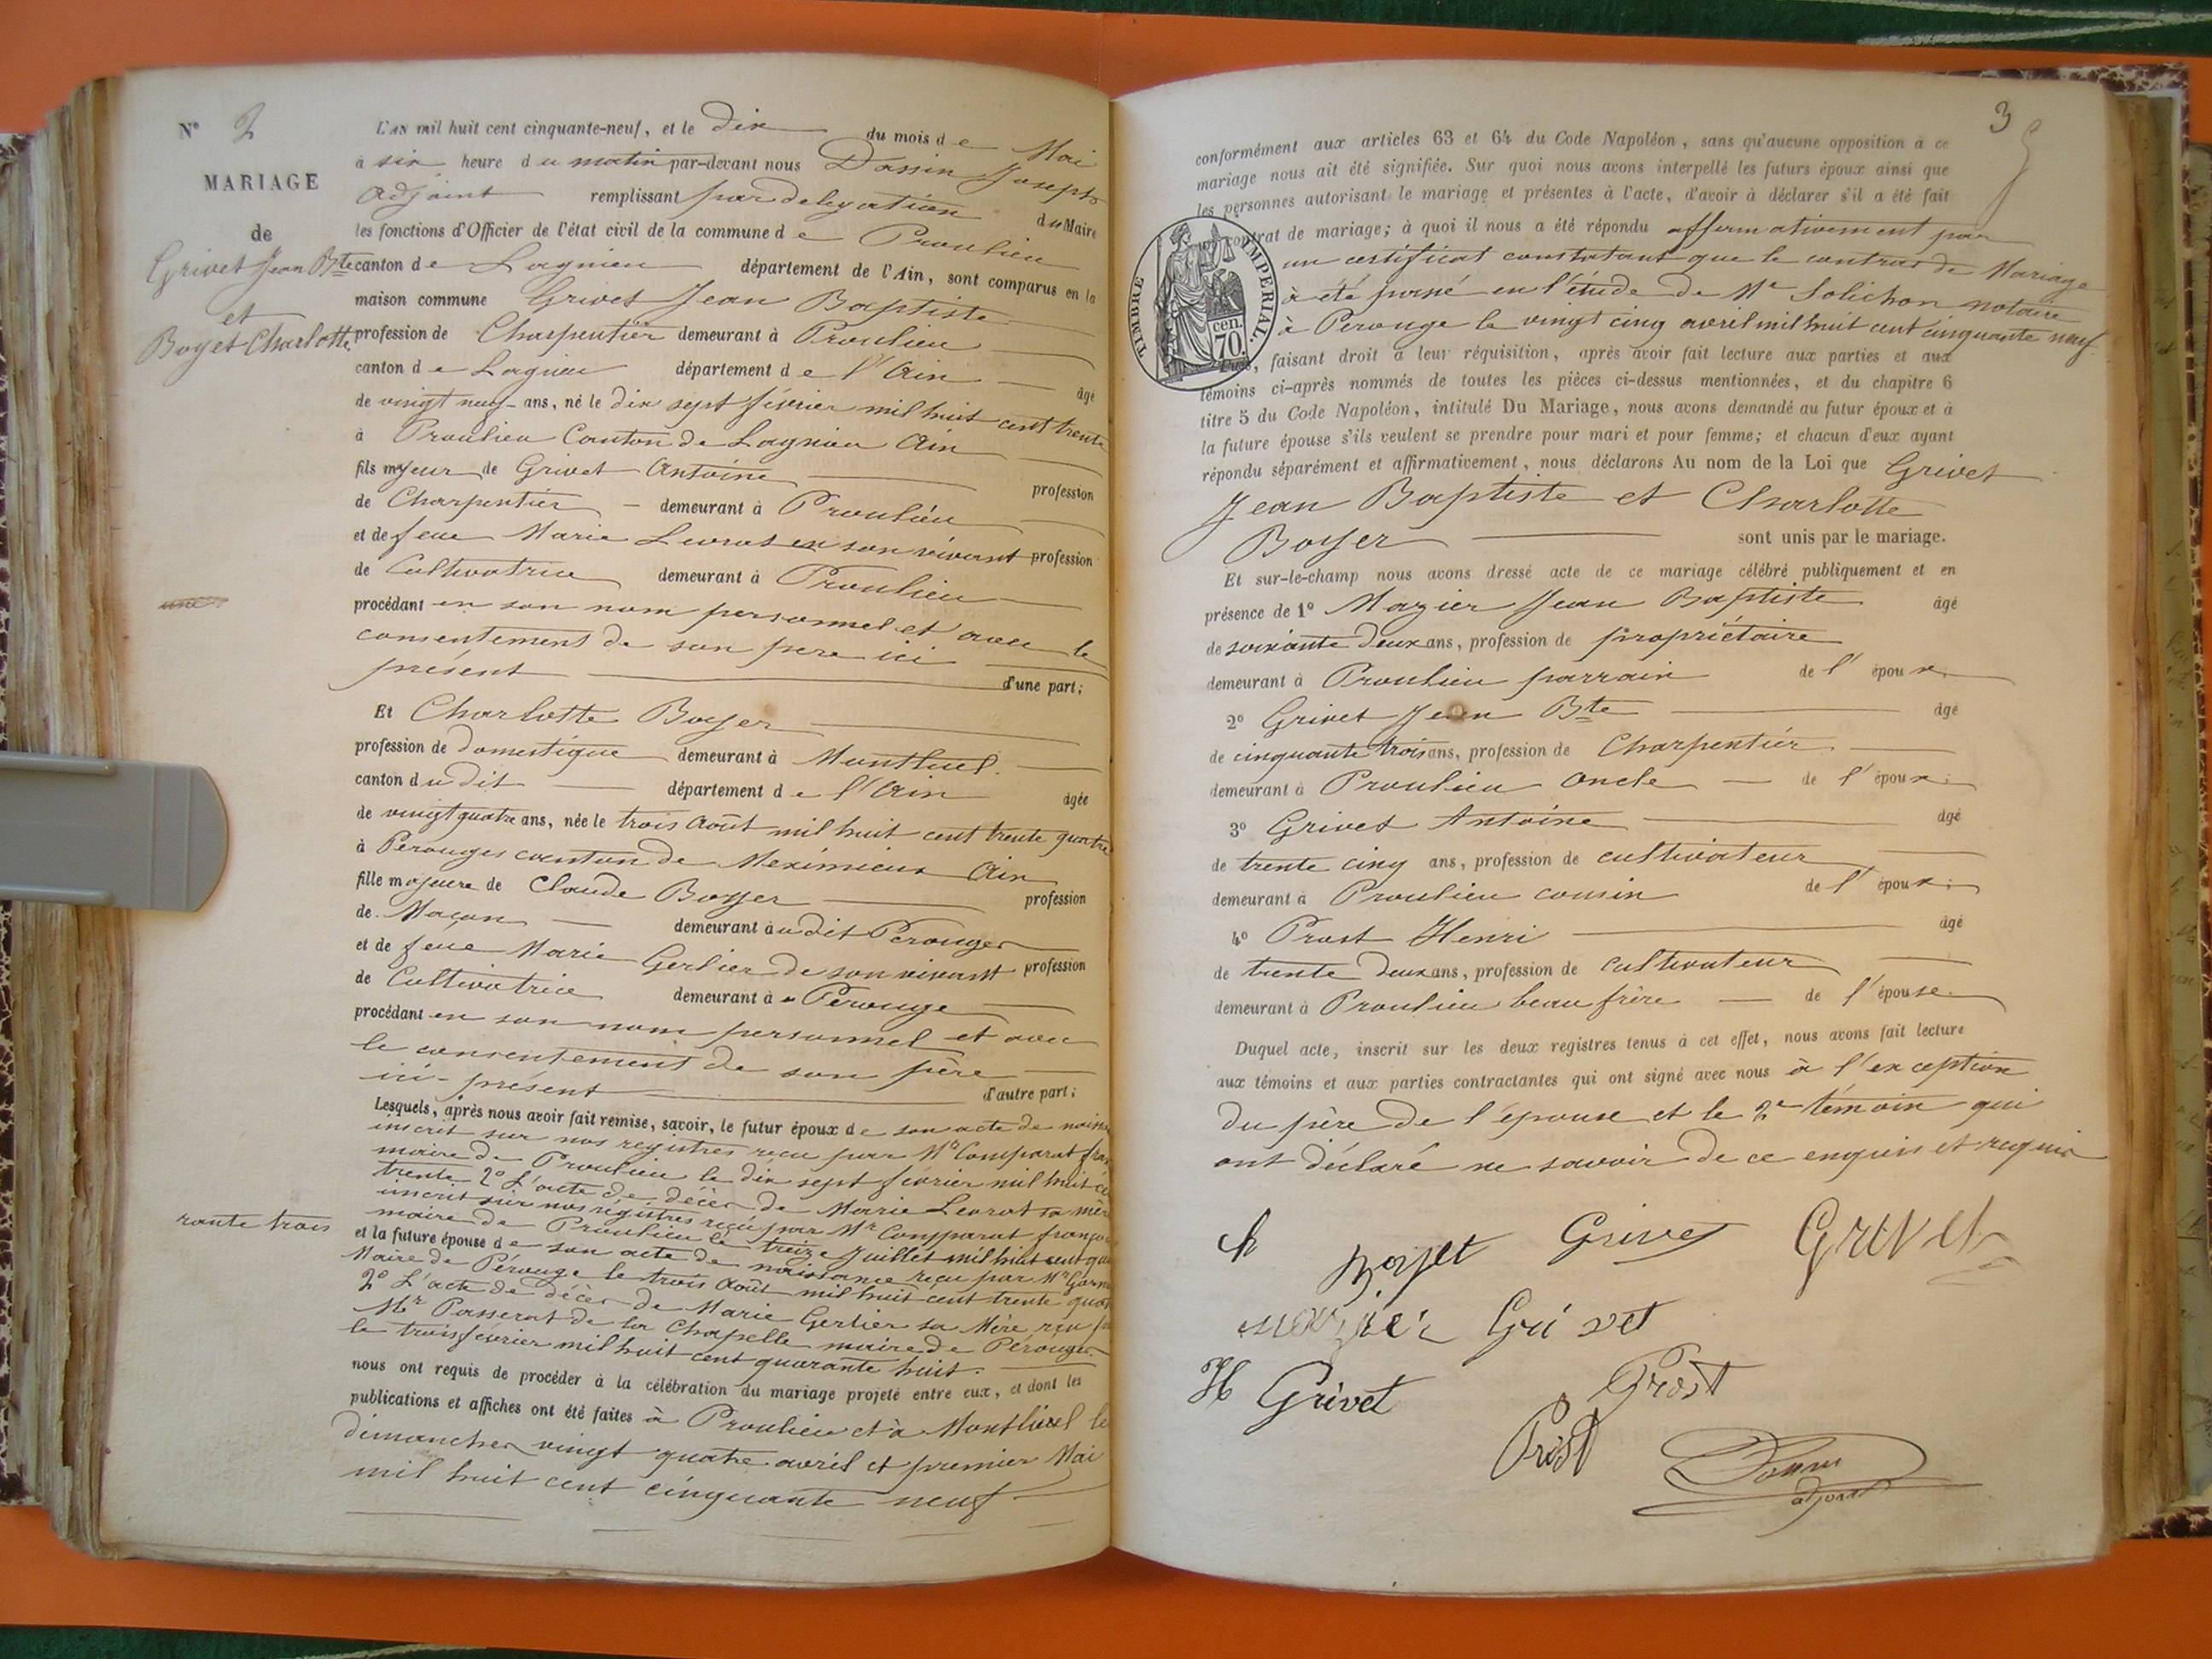 N° 2
MARIAGE
de
Grivet Jean Bte
et
Boyet Charlotte
L'AN mil huit cent cinquante-neuf, et le Dix du mois de Mai
à six heure du matin par-devant nous Dassin Joseph
Adjoint remplissant par delegation du Maire
les fonctions d'Officier de l'état civil de la commune de Proulieu
canton de Lagnieu département de l'Ain, sont comparus en la
maison commune Grivet Jean Baptiste
profession de Charpentier demeurant à Proulieu
canton de Lagnieu département de l'Ain âgé
de vingt neuf ans, né le dix sept février mil huit cent trente
à Proulieu Canton de Lagnieu Ain
fils majeur de Grivet Antoine profession
de Charpentier demeurant à Proulieu
et de feue Marie Levrat en son vivant profession
de Cultivatrice demeurant à Proulieu
procédant en son nom personnel et avec le
consentement de son pere ici
présent d'une part;
Et Charlotte Boyer
profession de domestique demeurant à Montluel
canton dudit département de l'Ain âgée
de vingt quatre ans, née le trois Août mil huit cent trente quatre
à Pérouges canton de Meximieux Ain
fille majeure de Claude Boyer profession
de Maçon demeurant audit Pérouges
et de feue Marie Gerlier de son vivant profession
de Cultivatrice demeurant à Pérouge
procédant en son nom personnel et avec
le consentement de son père
ici-présent d'autre part;
Lesquels, après nous avoir fait remise, savoir, le futur époux de son acte de
inscrit sur nos registres reçu par Mr Comparat
maire de Proulieu le dix sept février mil huit
trente 2° L'acte de décès de Marie Levrat sa
inscrit sur nos régistres reçu par Mr Comparat
maire de Proulieu le treize Juillet mil huit cent
rante trois
et la future épouse de son acte de naissance reçu par Mr
Maire de Pérouge le trois Août mil huit cent trente
2° L'acte de décès de Marie Gerlier sa Mère reçu
Mr Passerat de la Chapelle maire de Pérouges
le trois février mil huit cent quarante huit.
nous ont requis de procéder à la célébration du mariage projeté entre eux, et dont les
publications et affiches ont été faites à Proulieu et à Montluel le
dimanches vingt quatre avril et premier Mai
mil huit cent cinquante neuf
3
conformément aux articles 63 et 64 du Code Napoléon, sans qu'aucune opposition à ce
mariage nous ait été signifiée. Sur quoi nous avons interpellé les futurs époux ainsi que
les personnes autorisant le mariage et présentes à l'acte, d'avoir à déclarer s'il a été fait
contrat de mariage; à quoi il nous a été répondu affermativement par
un certificat constatant que le contrat de Mariage
à été passé en l'étude de Me Solichon notaire
à Perouge le vingt cinq avril mil huit cent cinquante neuf
TIMBRE IMPÉRIAL.
70 cen.
faisant droit à leur réquisition, après avoir fait lecture aux parties et aux
témoins ci-après nommés de toutes les pièces ci-dessus mentionnées, et du chapitre 6
titre 5 du Code Napoléon, intitulé Du Mariage, nous avons demandé au futur époux et à
la future épouse s'ils veulent se prendre pour mari et pour femme; et chacun d'eux ayant
répondu séparément et affirmativement, nous déclarons Au nom de la Loi que Grivet
Jean Baptiste et Charlotte
Boyer sont unis par le mariage.
Et sur-le-champ nous avons dressé acte de ce mariage célébré publiquement et en
présence de 1° Mazier Jean Baptiste âgé
de soixante deux ans, profession de propriétaire
demeurant à Proulieu parrain de l'époux
2° Grivet Jean Bte âgé
de cinquante trois ans, profession de Charpentier
demeurant à Proulieu Oncle de l'époux;
3° Grivet Antoine âgé
de trente cinq ans, profession de cultivateur
demeurant à Proulieu cousin de l'époux;
4° Prost Henri âgé
de trente deux ans, profession de Cultivateur
demeurant à Proulieu beau frère de l'épouse
Duquel acte, inscrit sur les deux registres tenus à cet effet, nous avons fait lecture
aux témoins et aux parties contractantes qui ont signé avec nous à l'exception
du père de l'épouse et le 2e témoin qui
ont déclaré ne savoir de ce enquis et requis
Ch Boyet Grivet Grivet
mazier Grivet
H Grivet Prost
Prost
Dassin
adjoint